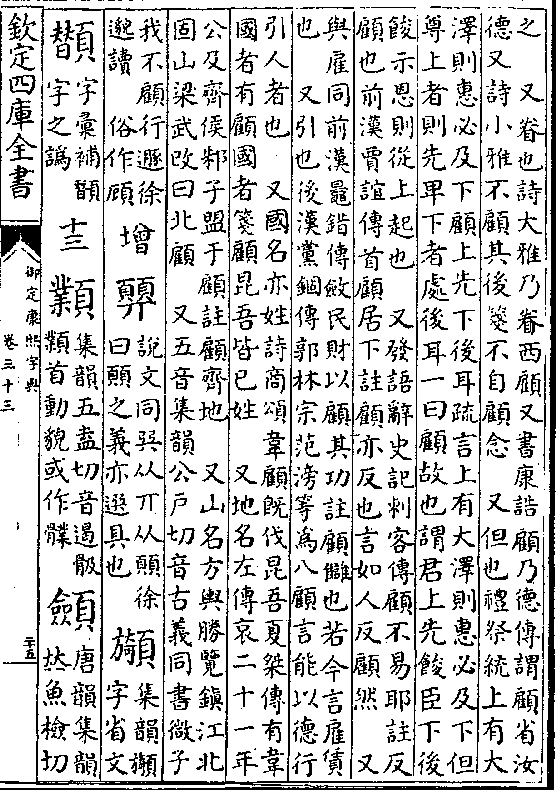 之　又眷也詩大雅乃眷西顧又書康誥顧乃德傳謂顧省汝
德又詩小雅不顧其後箋不自顧念　又但也禮祭統上有大
澤則惠必及下顧上先下後耳疏言上有大澤則惠必及下但
尊上者則先𤰞下者處後耳一曰顧故也謂君上先餕臣下後
餕示恩則從上起也　又發語辭史記刺客傳顧不易耶註反
顧也前漢賈誼傳首顧居下註顧亦反也言如人反顧然　又
與雇同前漢鼂錯傳斂民財以顧其功註顧讎也若今言雇賃
也　又引也後漢黨錮傳郭林宗范滂等為八顧言能以德行
引人者也　又國名亦姓詩商頌韋顧旣伐昆吾夏桀傳有韋
國者有顧國者箋顧昆吾皆已姓　又地名左傳哀二十一年
公及齊侯邾子盟于顧註顧齊地　又山名方輿勝覽鎮江北
固山梁武改曰北顧　又五音集韻公戶切音古義同書微子
我不顧行遯徐邈讀　俗作頋
增
顨
說文同巽从丌从頤徐曰頤之義亦選具也
䫏
集韻㿗字省文
䫙
字彙補顇字之譌
十三
顡
集韻五盍切音遏骰顡首動貌或作𩪧
顩
唐韻集韻𠀤魚檢切
欽定四庫全書
御定康熙字典
卷三十三
二十五